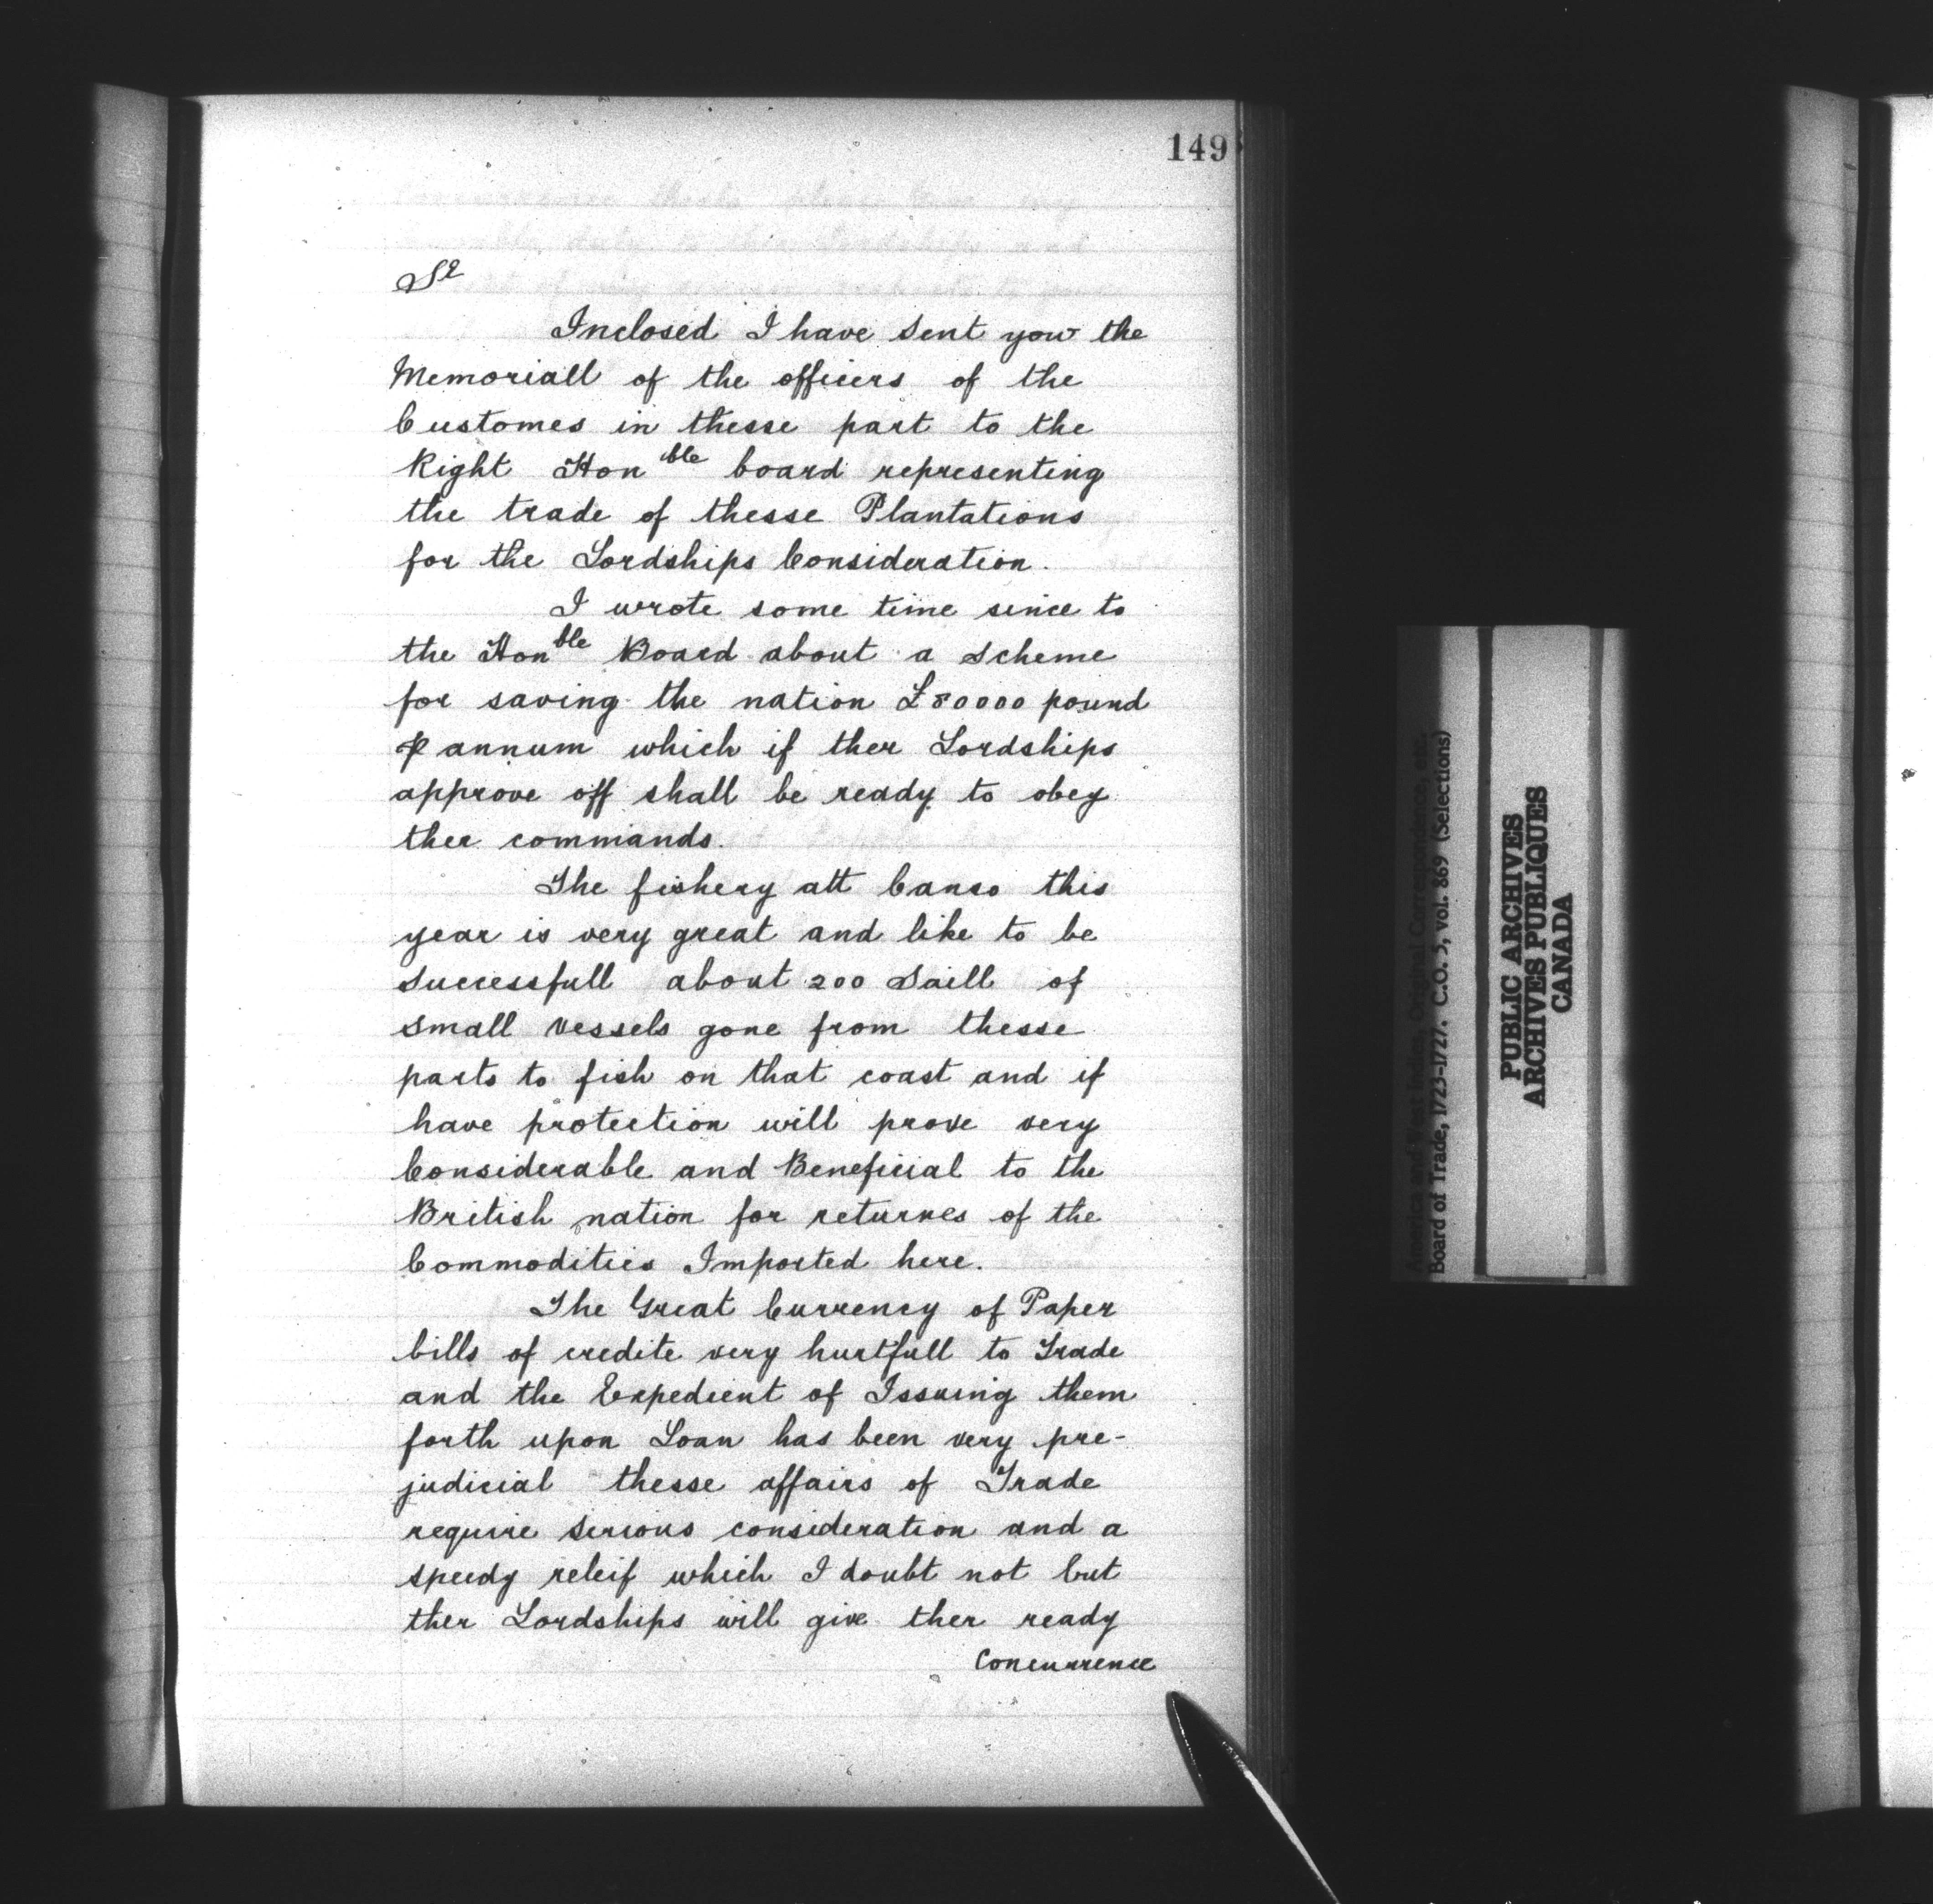 149
Sr
Inclosed I have sent you the
Memoriall of the officers of the
Customes in thesse part to the
Right Honble board representing
the trade of thesse Plantations
for the Lordships Consideration.
I wrote some time since to
the Honble Board about a Scheme
for saving the nation £80000 pound
⅌ annum which if ther Lordships
approve off shall be ready to obey
ther commands.
The fishery att Canso this
year is very great and like to be
successfull about 200 Saill of
small vessels gone from thesse
parts to fish on that coast and if
have protection will prove very
Considerable and Beneficial to the
British nation for returnes of the
Commodities Imported here.
The Great Currency of Paper
bills of credite very hurtfull to Trade
and the Expedient of Issuing them
forth upon Loan has been very pre-
judicial thesse affairs of Trade
require serious consideration and a
speedy releif which I doubt not but
ther Lordships will give ther ready
Concurrence
America and West Indies, Original Correspondence, etc.
Board of Trade, 1723-1727. C.O. 5, vol. 869 (Selections)
PUBLIC ARCHIVES
ARCHIVES PUBLIQUES
CANADA